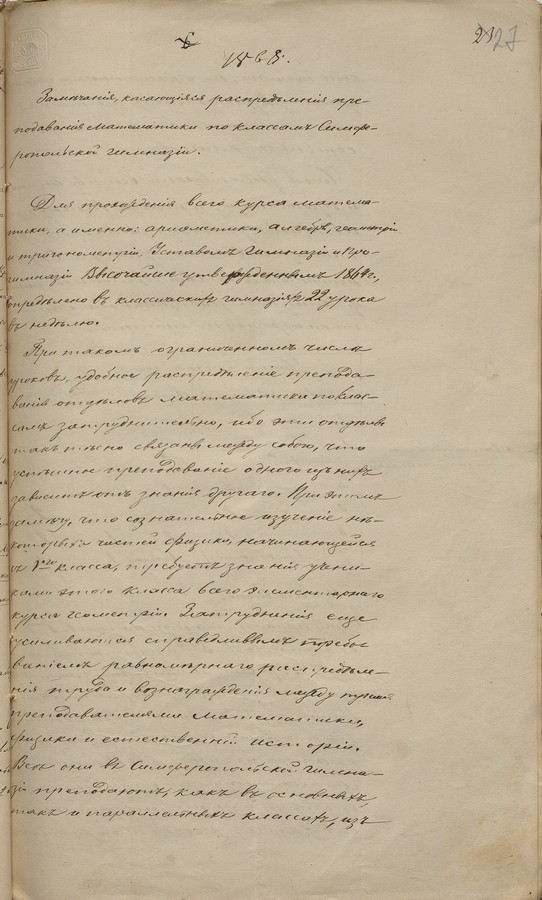 6
1868.
23 27
Замѣчанія, касающіяся распредѣленія пре-
подаванія математики по классамъ Симфе-
ропольской гимназіи.
Для прохожденія всего курса матема-
тики, а именно: ариѳметики, алгебры, геометріи
и тригонометріи, Уставомъ гимназій и про-
гимназій Высочайше утвержденнымъ 1864 г.,
опредѣлено въ классическихъ гимназіяхъ 22 урока
въ недѣлю.
При такомъ ограниченномъ числѣ
уроковъ, удобное распредѣленіе препода-
ванія отдѣловъ математики по клас-
самъ затруднительно, ибо эти отдѣлы
такъ тѣсно связаны между собою, что
успѣшное преподаваніе одного изъ нихъ
зависитъ отъ знанія другаго. При этомъ
замѣчу, что сознательное изученіе нѣ-
которыхъ частей физики, начинающейся
съ класса, требуетъ знанія учени-
ками этого класса всего элементарнаго
курса геометріи. Затрудненія еще
усиливаются справедливымъ требо-
ваніемъ равномѣрнаго распредѣле-
нія труда и вознагражденія между
преподавателями математики,
физики и естественной исторіи.
Всѣ они въ Симферопольской гимна-
зіи преподаютъ, какъ въ основныхъ,
такъ и параллельныхъ классахъ, изъ